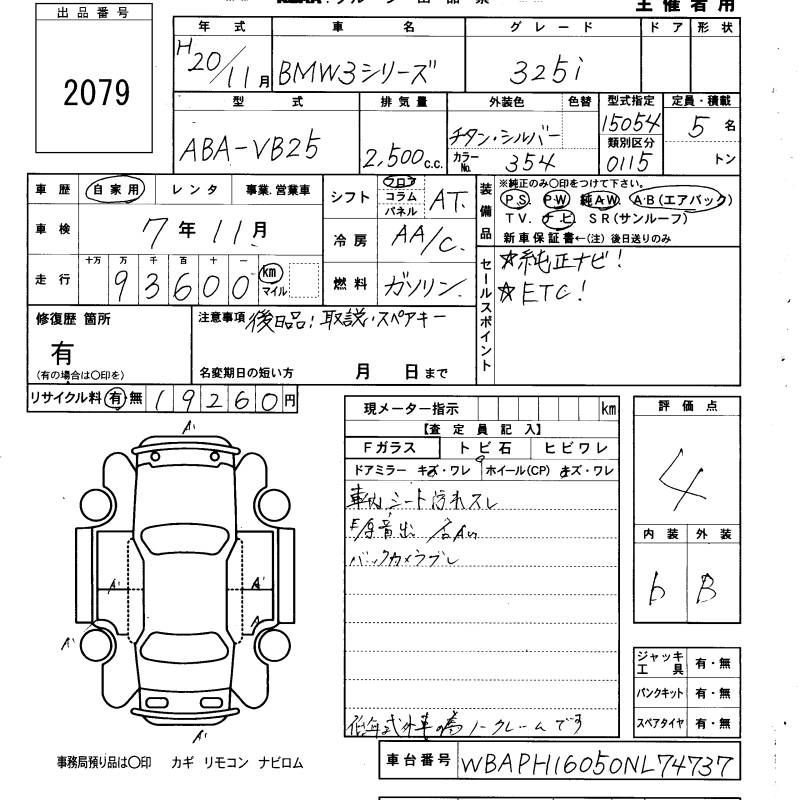 主催者用
出品番号
2079
年式 車名 グレード ドア 形状
H20/11月 BMW3シリーズ 325i
型式 排気量 外装色 色替 型式指定 定員・積載
ABA-VB25 2,500c.c. チタン・シルバー 15054 5名
類別区分
カラーNo. 354 0115 トン
車歴 自家用 レンタ 事業.営業車
シフト フロア コラム パネル AT.
装備品 ※純正のみ〇印をつけて下さい。
PS. PW 純AW. AB(エアバック)
TV. ナビ SR(サンルーフ)
新車保証書←(注)後日送りのみ
車検 7年11月
冷房 AA/C.
走行 十万 万 千 百 十 一
93600 km マイル
燃料 ガソリン.
セールスポイント ☆純正ナビ!
☆ETC!
修復歴 箇所
有
(有の場合は〇印を)
注意事項 後日品!取説・スペアキー
名変期日の短い方 月 日まで
リサイクル料 有 無 19260円
現メーター指示 km
【査定員記入】
Fガラス トビ石 ヒビワレ
ドアミラー キズ・ワレ ホイール(CP) キズ・ワレ
車内シート汚れスレ
バックカメラブレ
低年式外車の為ノークレームです
評価点
4
内装 外装
b B
A'
A' A'
A
A'
A'
ジャッキ工具 有・無
パンクキット 有・無
スペアタイヤ 有・無
事務局預り品は〇印 カギ リモコン ナビロム
車台番号 WBAPH16050NL74737